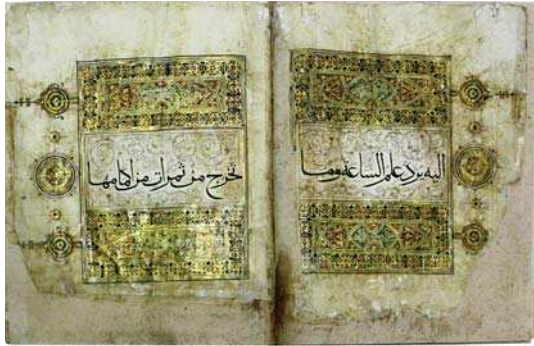 اليه يرد علم الساعة وما
تخرج من ثمرات من اكمامها